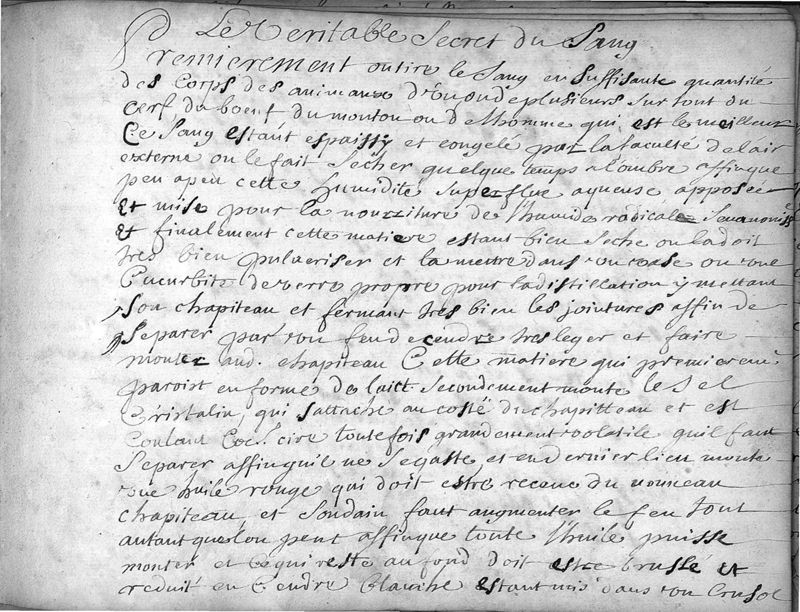 Le Veritable Secret du Sang
Premierement on tire le Sang en suffisante quantité
des corps des animaux d'un ou de plusieurs sur tout du
cerf du boeuf du mouton ou de lhomme qui est le meilleur
Ce Sang estant espaissy et congelé par la faculté de lair
externe on le fait Secher quelque temps a lombre affinque
peu apeu cette humidité superflue aqueuse apposée
et mise pour la nourriture de lhumide radicale
et finalement cette matiere estant bien seche on la doit
tres bien pulveriser et la mettre dans un vase ou une
Cucurbite de verre propre pour la distillation y mettant
Son chapiteau et fermant tres bien les jointures affin de
Separer par un feu de cendre tres leger et faire
monter aud. chapiteau Cette matiere qui premierem̄
paroist en forme de laict secondement monte le sel
Cristalin, qui sattache au costé du chapitteau et est
Coulant cire toutefois grandement volatile quil faut
Separer affinquil ne se gaste et en dernier lieu monte
une huile rouge qui doit estre receue du nouveau
chapiteau et soudain faut augmenter le feu tout
autant que lon peut affinque toute lhuile puisse
monter et ce qui reste au fond doit estre brussé et
reduit en Cendre blanche estant mis dans un Crusol